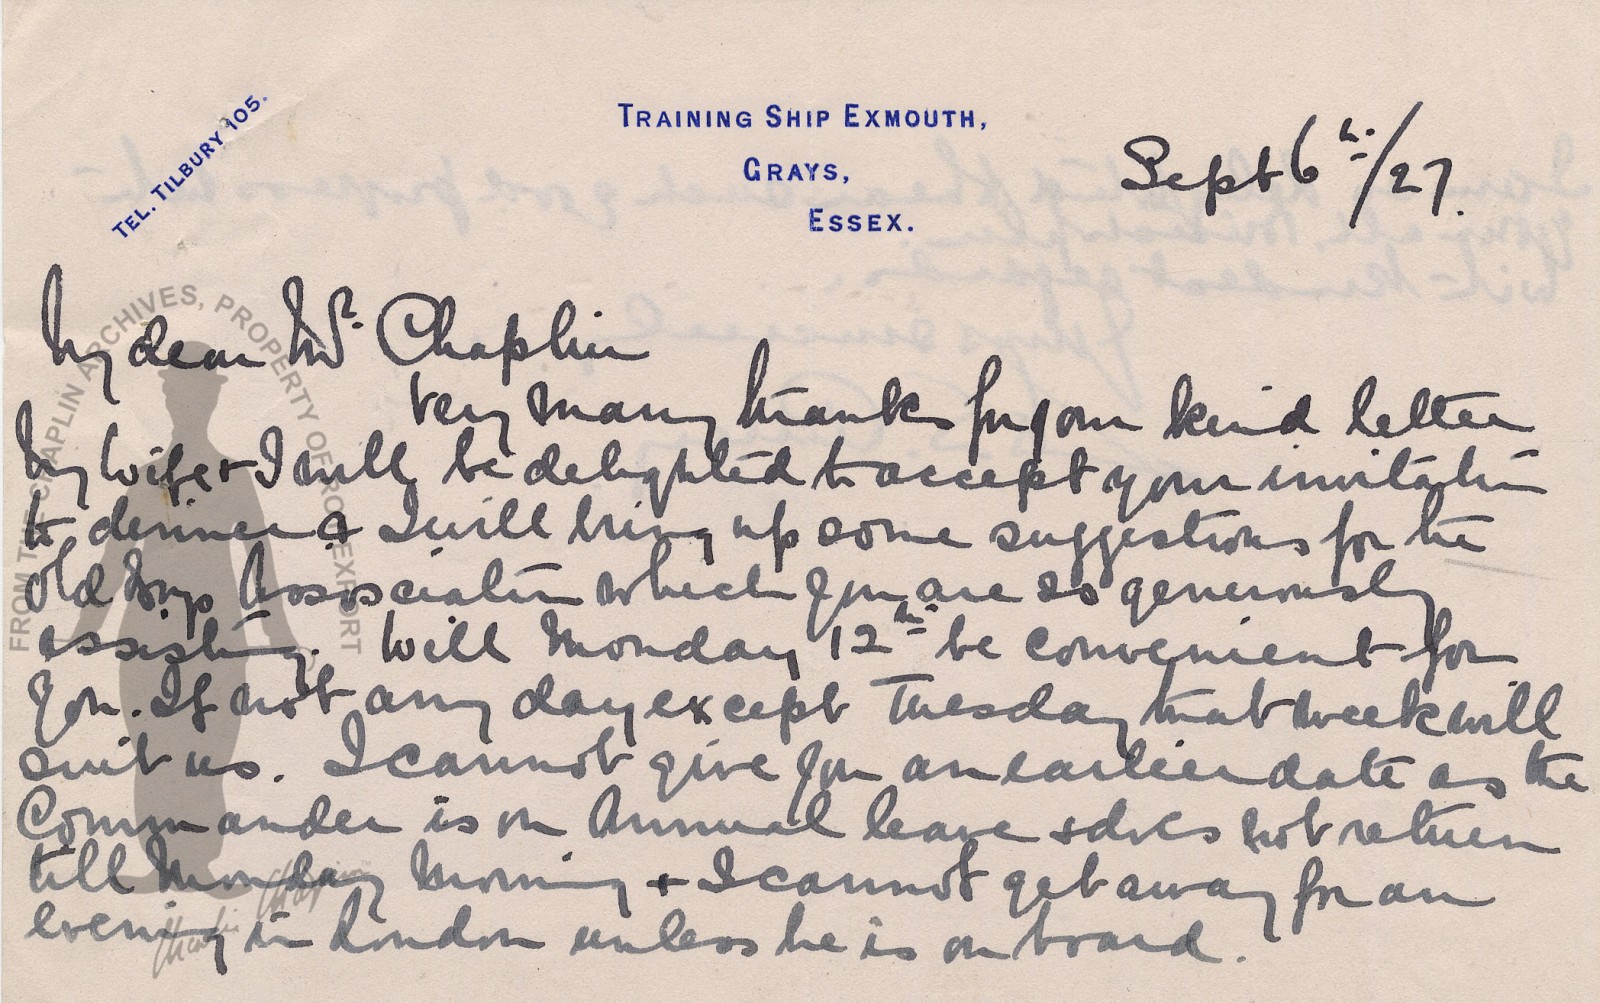 TEL. TILBURY 105.
TRAINING SHIP EXMOUTH,
GRAYS,
ESSEX.
Sept 6th/27.
My dear Mr. Chaplin
Very many thanks for your kind letter
My wife & I will be delighted to accept your invitation
to dinner & I will bring up some suggestions for the
Old Boys Association which you are so generously
assisting. Will Monday 12th be convenient for
you. If not any day except Tuesday that week will
suit us. I cannot give you an earlier date as the
Commander is on Annual leave & does not return
till Monday Morning & I cannot get away for an
evening in London unless he is on board.
FROM THE CHAPLIN ARCHIVES, PROPERTY OF ROY EXPORT
Charlie Chaplin